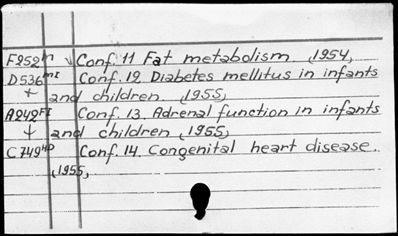 F252m ↓ Conf. 11 Fat metabolism. (1954)
D536mi Conf. 12. Diabetes mellitus in infants
+ and children. (1955)
A242Fi Conf. 13. Adrenal function in infants
+ and children (1955)
C749HD Conf. 14. Congenital heart disease.
(1955)